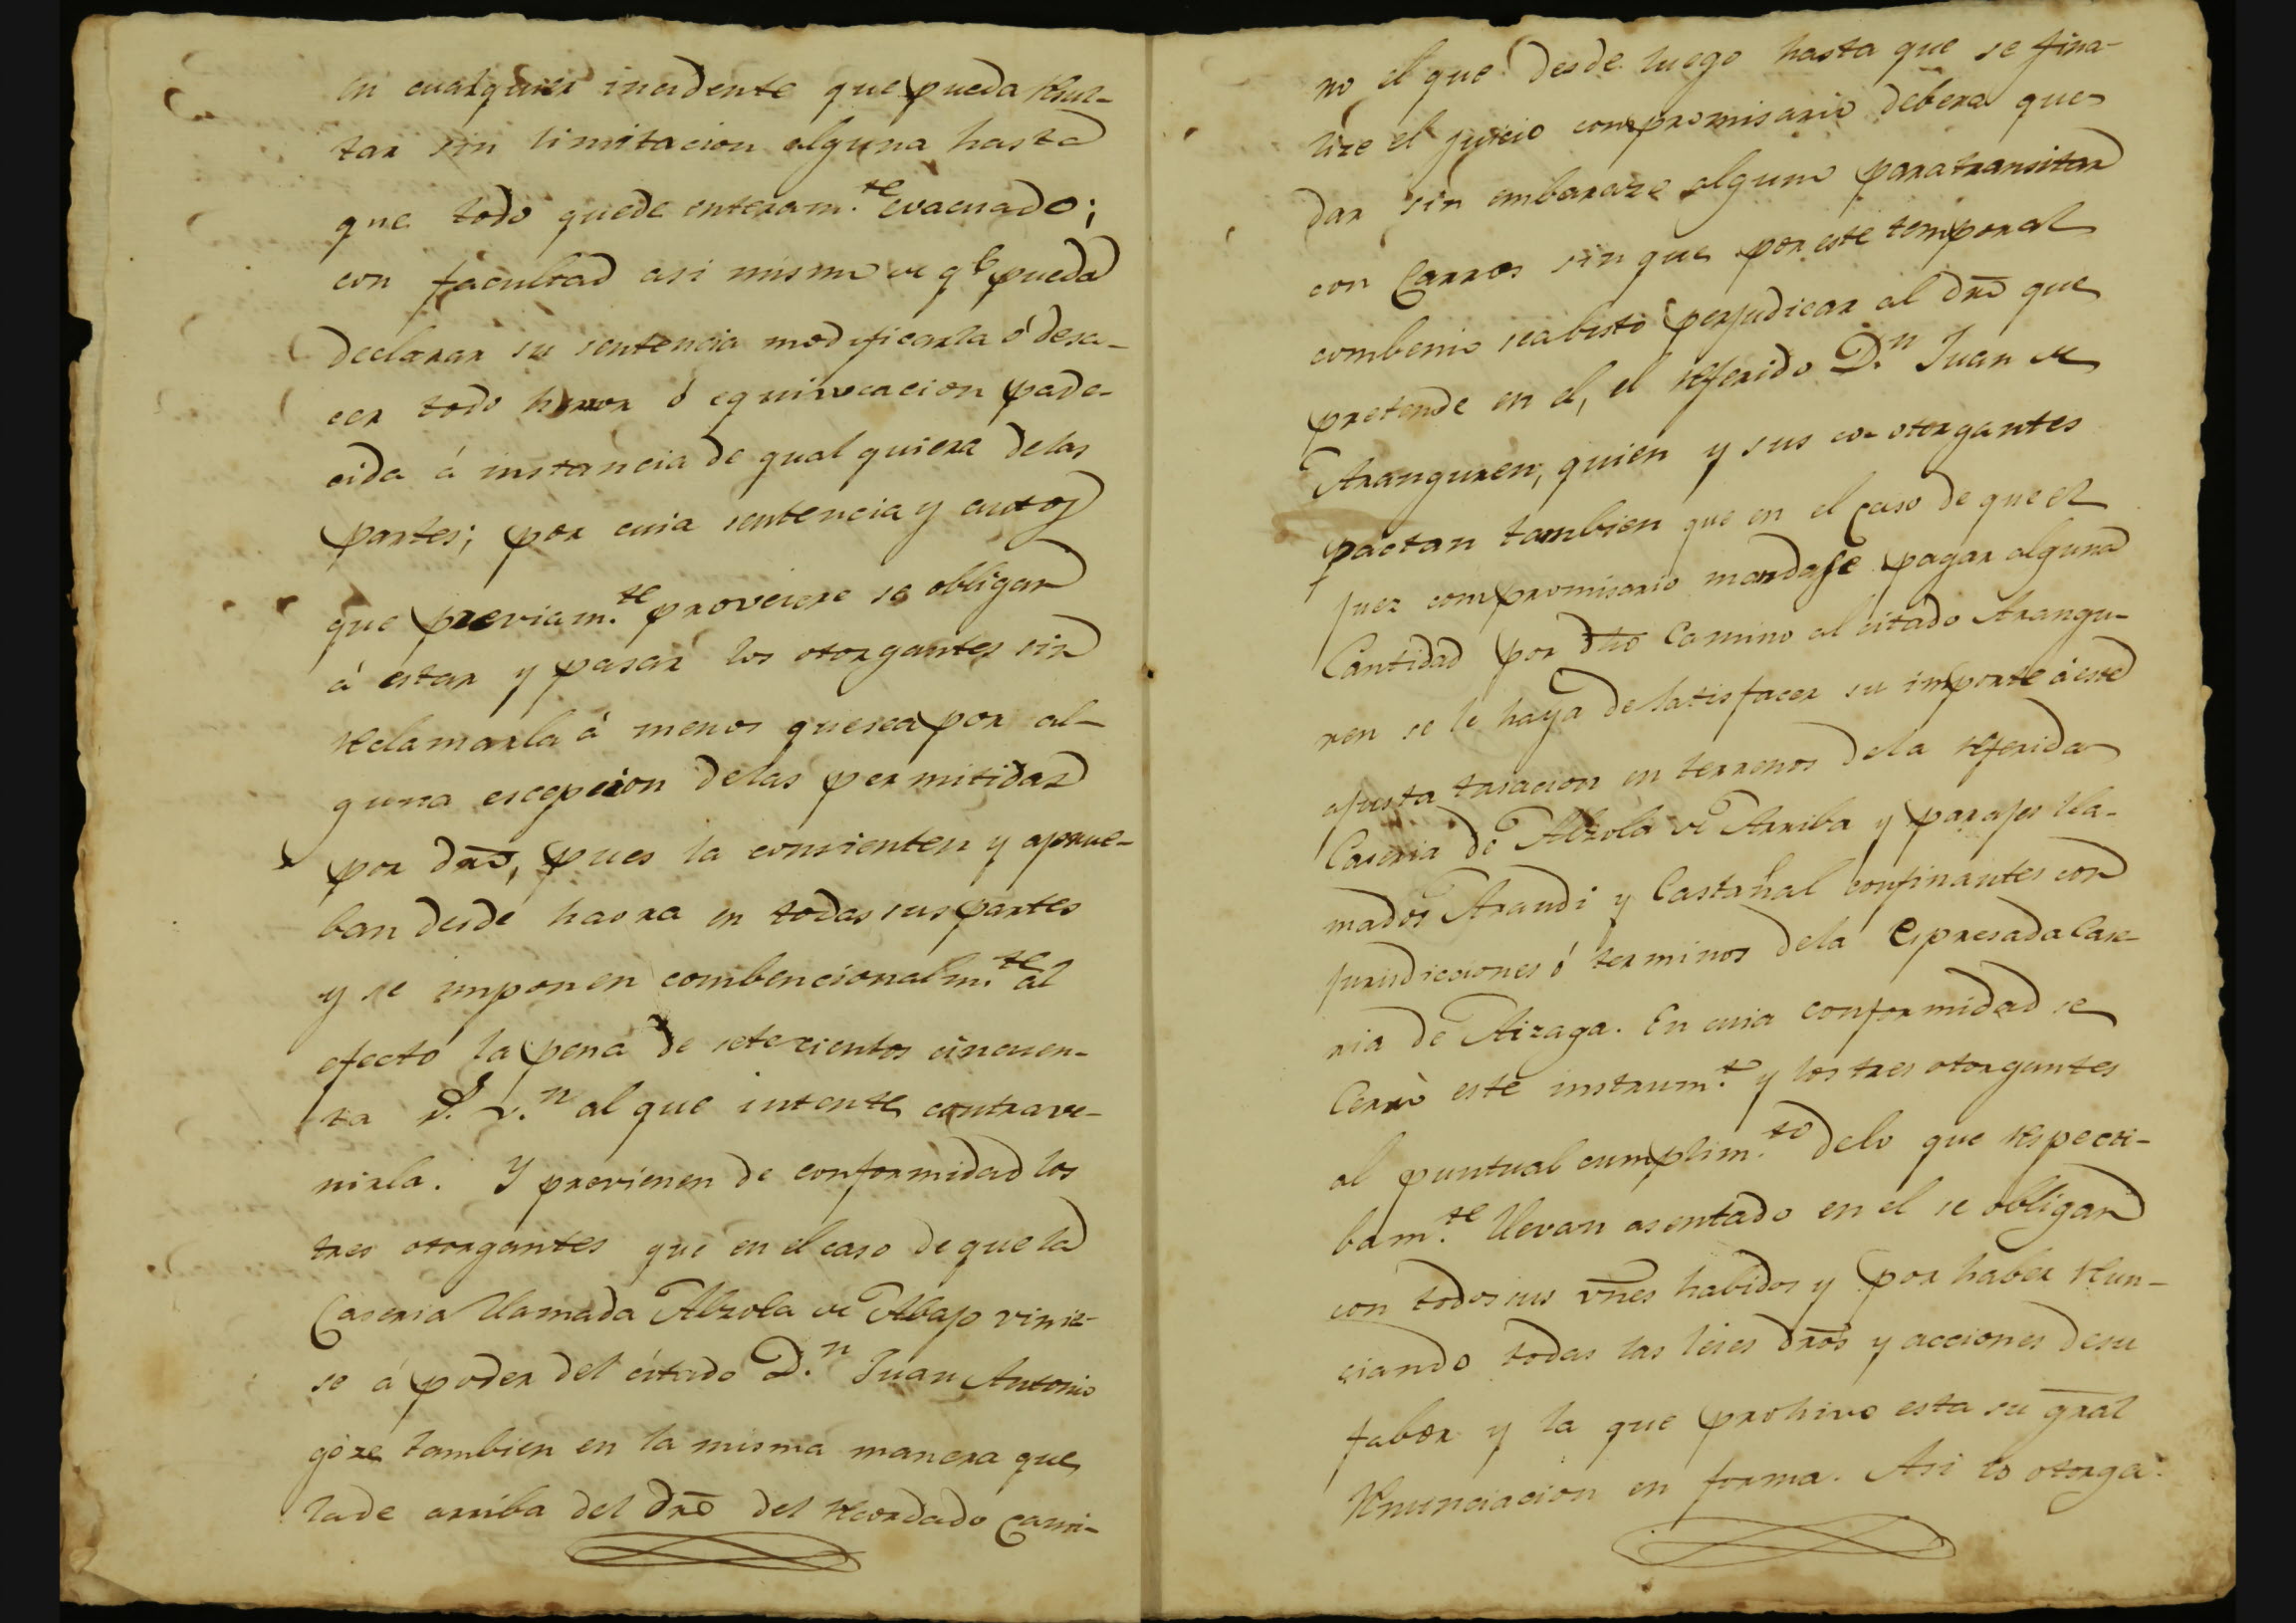 en cualquier incidente que pueda resul-
tar sin limitacion alguna hasta
que todo quede enteram.te evacuado;
con facultad asi mismo de q.e pueda
declarar su sentencia modificarla ó desa-
cer todo herror ó equivocacion pade-
cida á instancia de qualquiera delas
partes; por cuia sentencia y autos
que previam.te proveiere se obligan
á estar y pasar los otorgantes sin
reclamarla á menos que sea por al-
guna escepcion delas permitidas
por dro, pues la consienten y aprue-
ban desde haora en todas sus partes
y se imponen combencionalm.te al
efecto la pena de setecientos cincuen-
ta r.s v.n al que intente contrave-
nirla. Y previenen de conformidad los
tres otorgantes que en el caso de que la
Caseria llamada Alzola de Abajo vinie-
se á poder del citado D.n Juan Antonio
goze tambien en la misma manera que
la de arriba del dro del recordado Cami-
no el que desde luego hasta que se fina-
lize el juicio compromisario debera que-
dar sin embarazo alguno para transitar
con Carros sin que por este temporal
combenio sea bisto perjudicar al dro que
pretende en el, el referido D.n Juan de
Aranguren, quien y sus co-otorgantes
pactan tambien que en el caso de que el
juez compromisario mandase pagar alguna
Cantidad por dho Camino al citado Arangu-
ren se le haya de satisfacer su importe á este
ajusta tasacion en terrenos dela referida
Caseria de Alzola de Arriba y parajes lla-
mados Arandi y Castañal confinantes con
jurisdicciones ó terminos dela espresada Case-
ria de Aizaga. En cuia conformidad se
Cerró este instrum.to y los tres otorgantes
al puntual cumplim.to delo que respecti-
bam.te llevan asentado en el se obligan
con todos sus vnes habidos y por haber renun-
ciando todas las leies dros y acciones desu
fabor y la que prohive esta su gral
renunciacion en forma. Asi lo otorga-